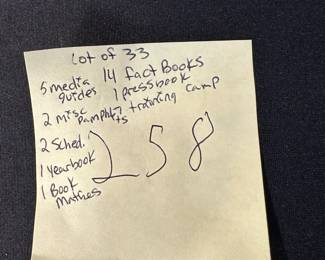 Lot of 33
5 media guides 14 fact Books
1 pressbook
2 misc pamphlets 7 training camp
2 Sched.
1 Yearbook
1 Book Matches
258